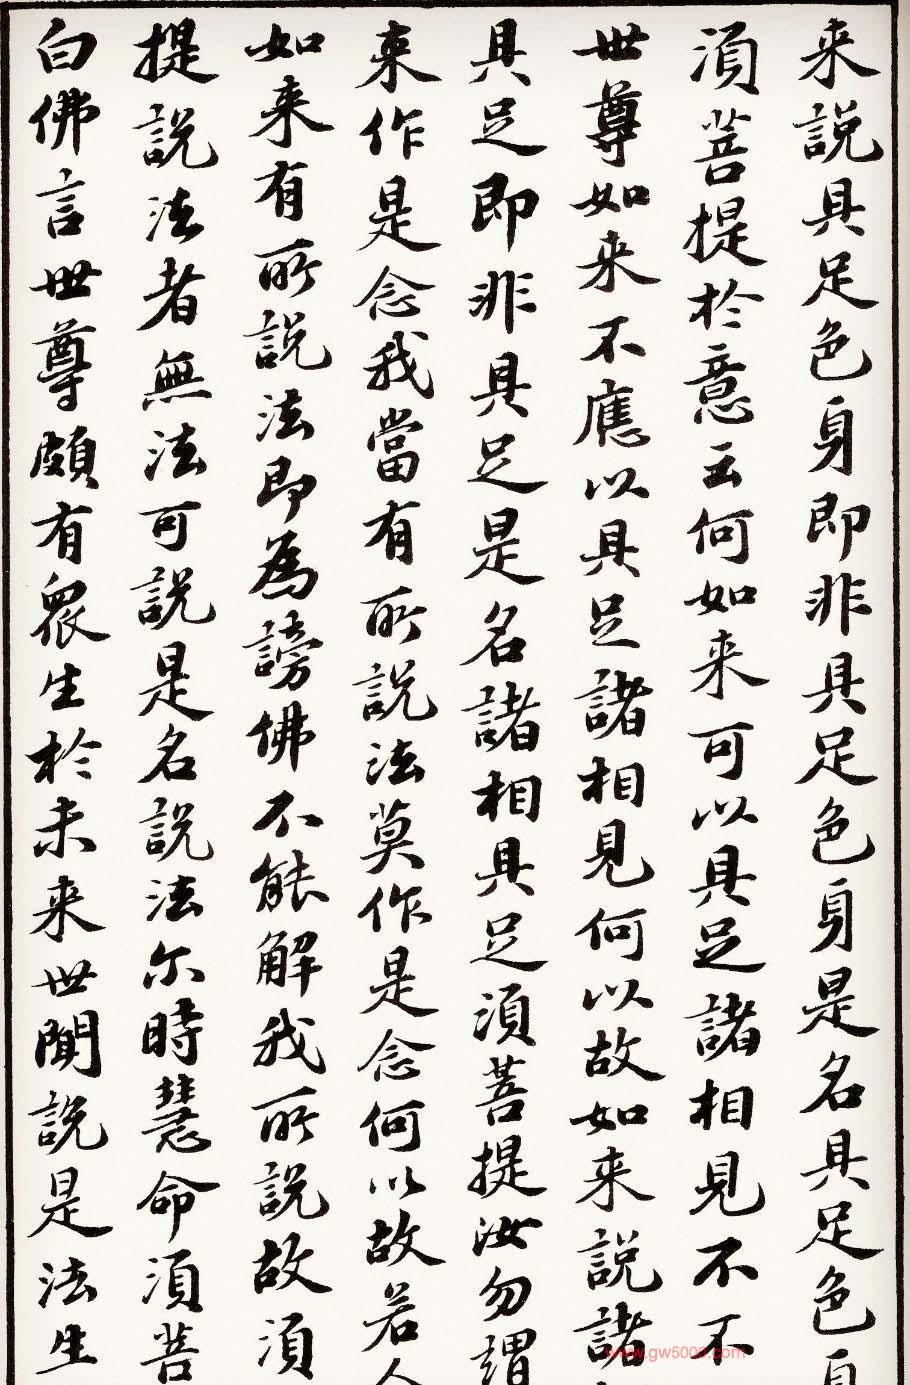 来說具足色身即非具足色身是名具足色身
須菩提於意云何如来可以具足諸相見不不
世尊如来不應以具足諸相見何以故如来說諸
具足即非具足是名諸相具足須菩提汝勿謂
来作是念我當有所說法莫作是念何以故若人
如来有所說法即為謗佛不能解我所說故須
提說法者無法可說是名說法尔時慧命須菩
白佛言世尊頗有衆生於未来世聞說是法生
www.gw5000.com